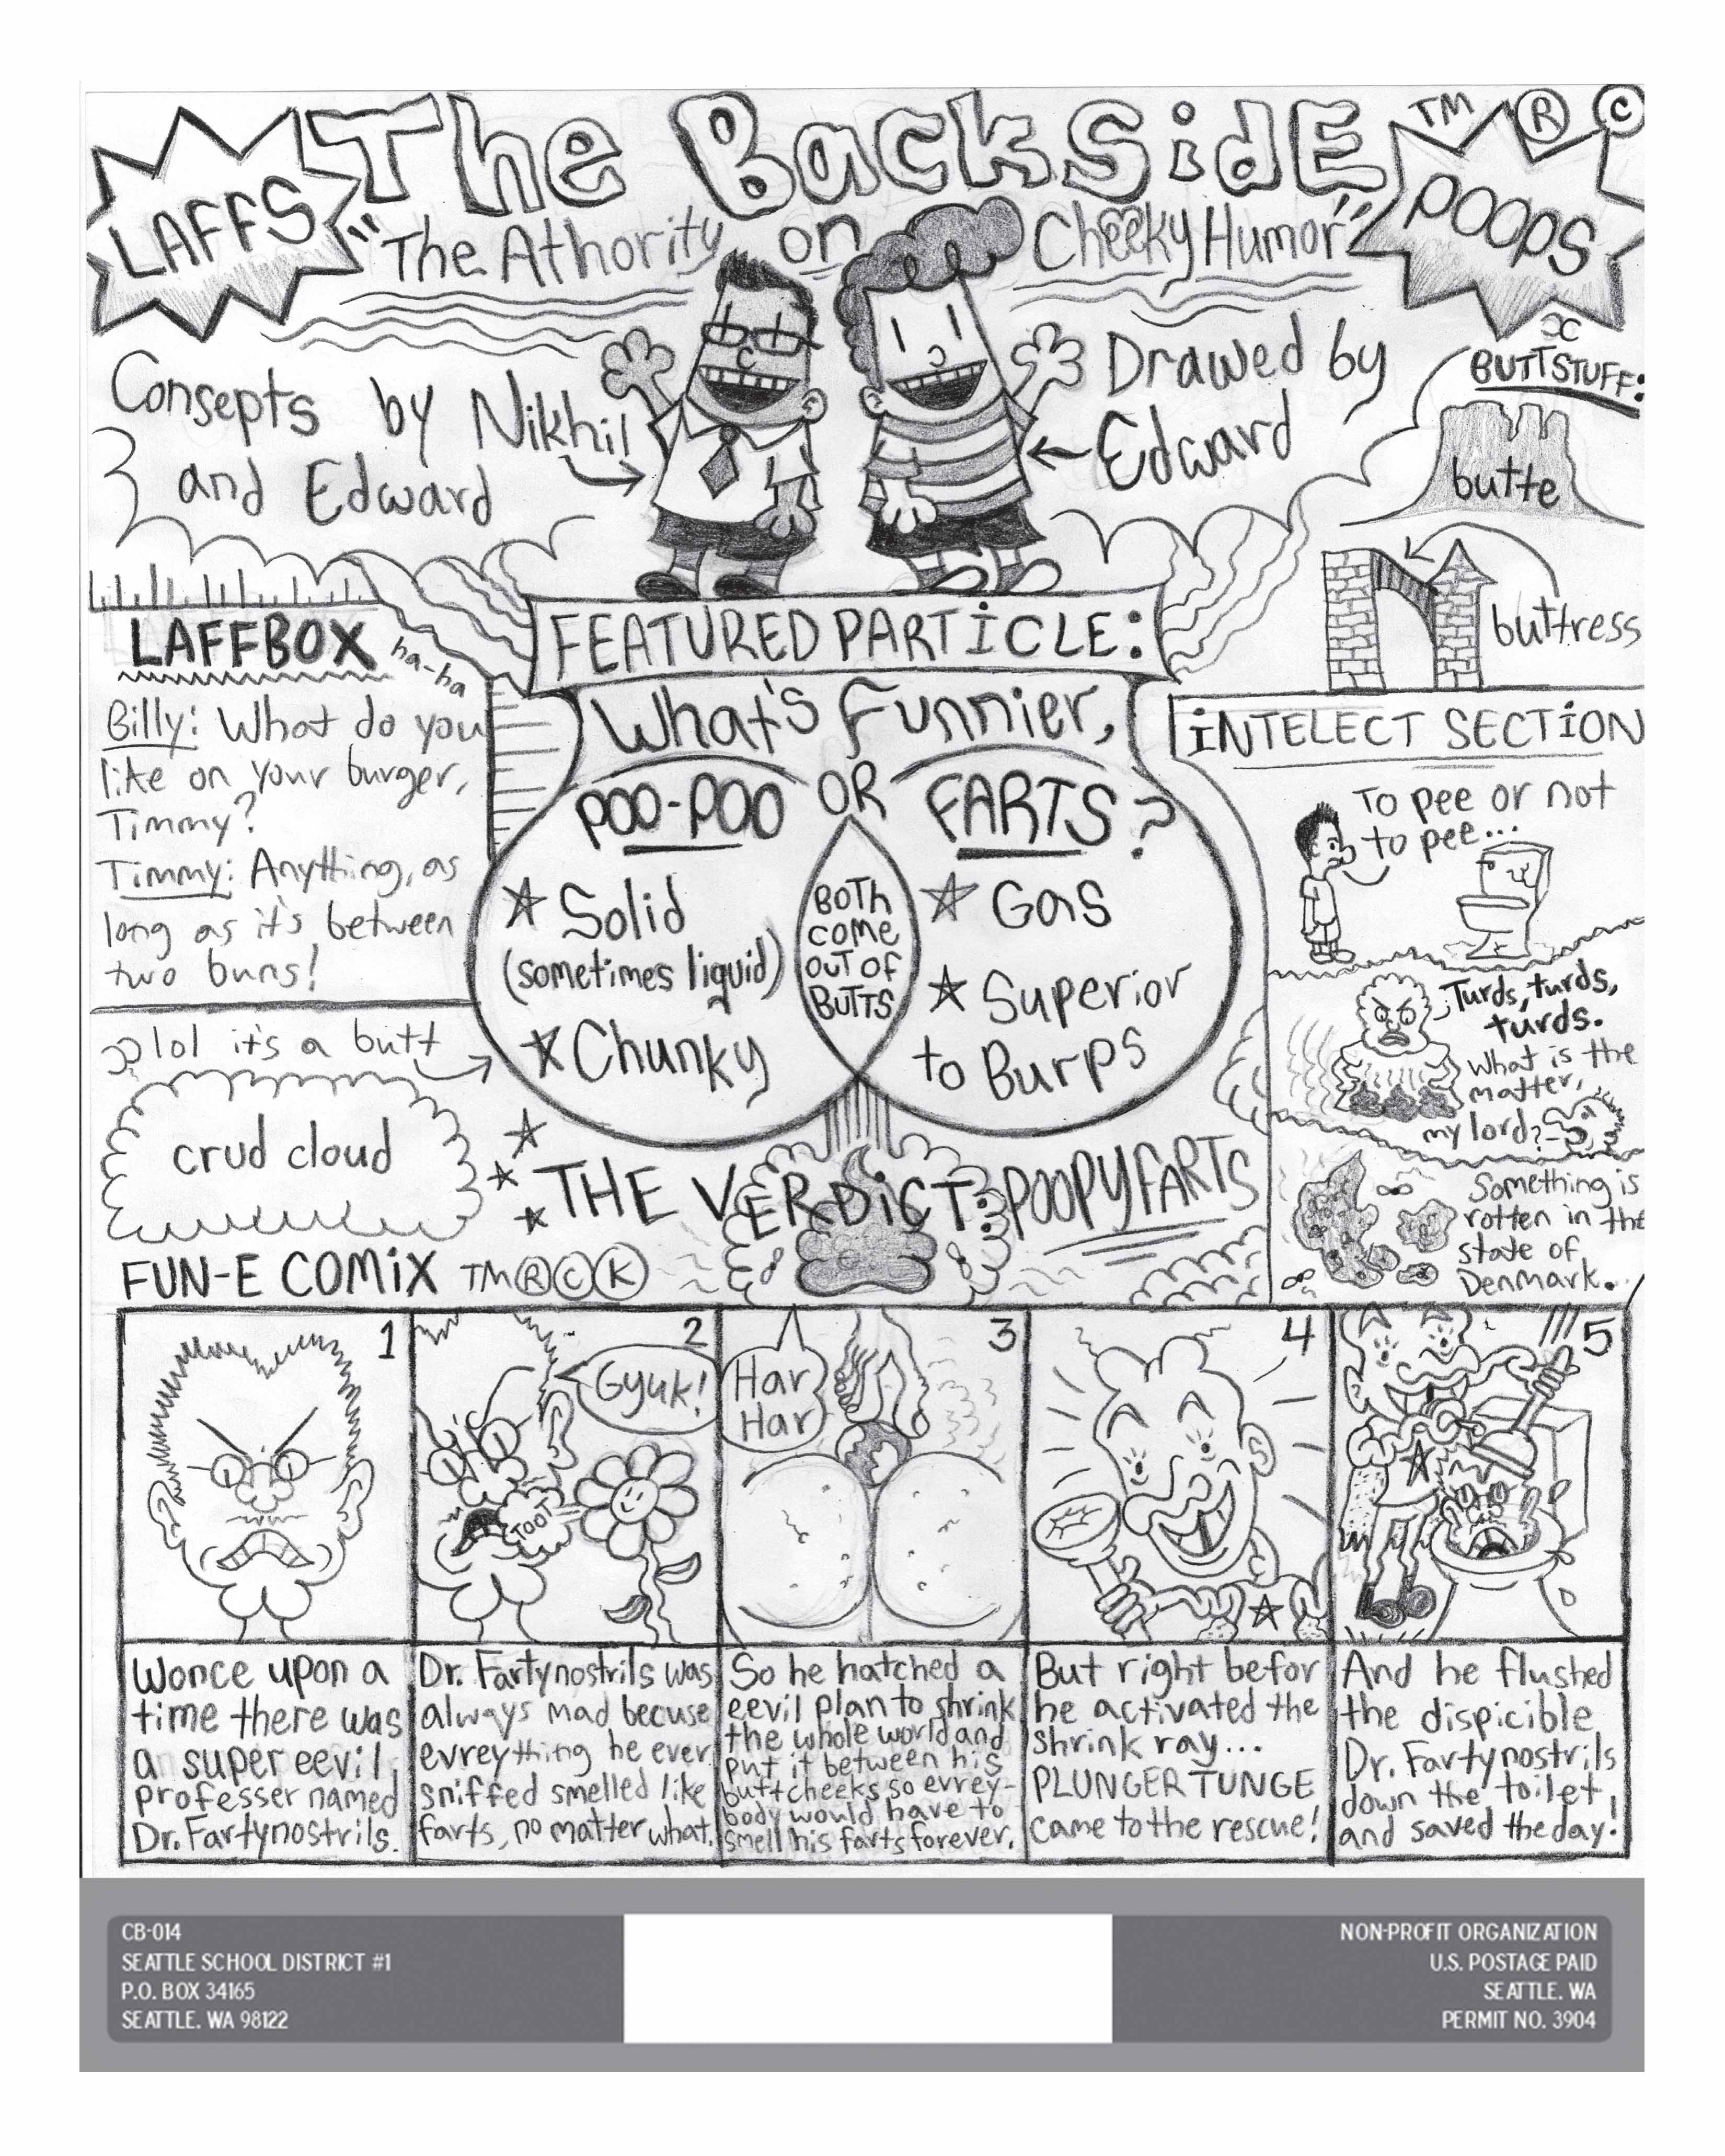 The BackSidE TM ® ©
LAFFS
POOPS
"The Athority on Cheeky Humor"
Consepts by Nikhil
and Edward
Drawed by
Edward
BUTT STUFF:
butte
buttress
LAFFBOX
ha-ha
Billy: What do you
like on your burger,
Timmy?
Timmy: Anything, as
long as it's between
two buns!
lol it's a butt
crud cloud
FEATURED PARTICLE:
What's Funnier,
POO-POO OR FARTS?
★ Solid
(sometimes liquid)
★ Chunky
BOTH
COME
OUT OF
BUTTS
★ Gas
★ Superior
to Burps
THE VERDICT: POOPYFARTS
INTELECT SECTION
To pee or not
to pee...
Turds, turds,
turds.
What is the
matter,
my lord?
Something is
rotten in the
state of
Denmark...
FUN-E COMIX TM ® © Ⓚ
1
Wonce upon a
time there was
a super eevil
professer named
Dr. Fartynostrils.
2
Gyuk!
TOOT
Dr. Fartynostrils was
always mad becuse
evreything he ever
sniffed smelled like
farts, no matter what.
3
Har
Har
So he hatched a
eevil plan to shrink
the whole world and
put it between his
buttcheeks so evrey-
body would have to
smell his farts forever.
4
But right befor
he activated the
shrink ray...
PLUNGER TUNGE
came to the rescue!
5
And he flushed
the dispicible
Dr. Fartynostrils
down the toilet,
and saved the day!
CB-014
SEATTLE SCHOOL DISTRICT #1
P.O. BOX 34165
SEATTLE. WA 98122
NON-PROFIT ORGANIZATION
U.S. POSTAGE PAID
SEATTLE. WA
PERMIT NO. 3904